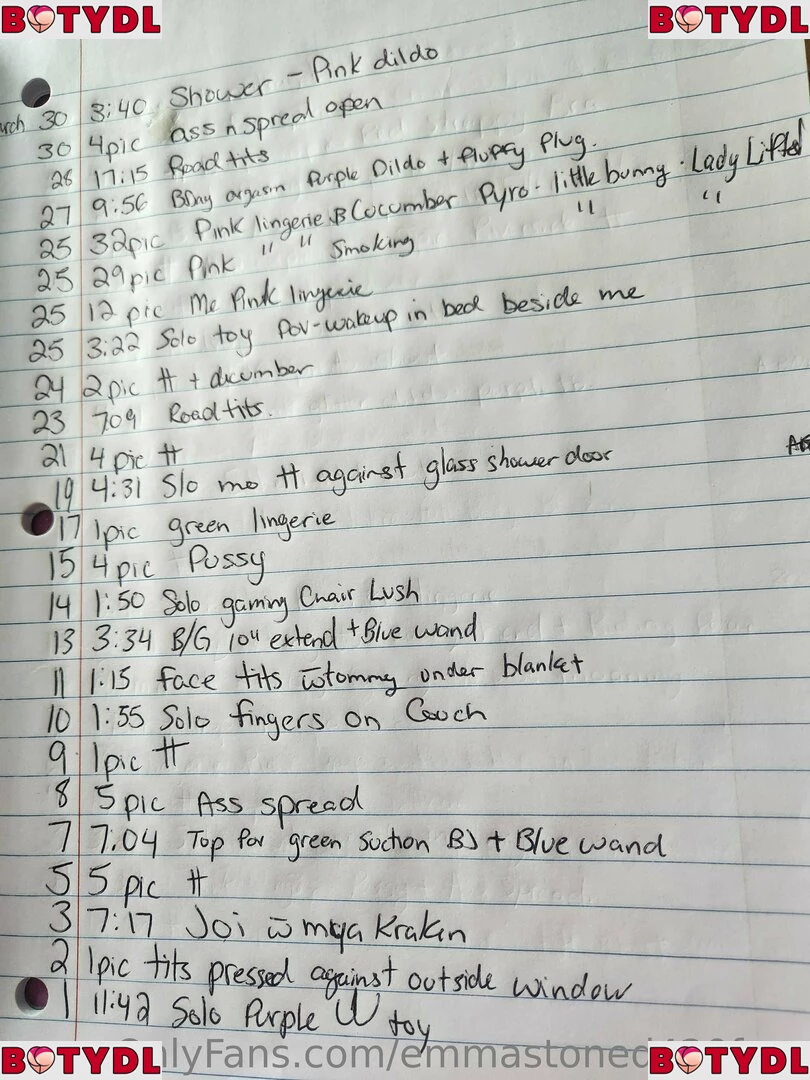 BOTYDL BOTYDL
arch 30 3:40 Shower - Pink dildo
30 4pic ass n spread open
28 17:15 Road tits
27 9:56 orgasm Purple Dildo + fluffy Plug.
25 32pic Pink lingerie Cocumber Pyro - little bunny - Lady Lifted
25 29pic Pink " " Smoking " "
25 12 pic Me Pink lingerie
25 3:22 Solo toy Pov-wakeup in bed beside me
24 2pic tt +
23 7:09 Road tits.
21 4 pic tt
19 4:31 Slo mo tt against glass shower door
17 1pic green lingerie
15 4pic Pussy
14 1:50 Solo gaming Chair Lush
13 3:34 B/G 10" extend + Blue wand
11 1:15 face tits w tommy under blanket
10 1:55 Solo fingers on Couch
9 1pic tt
8 5pic Ass spread
7 7:04 Top for green Suction BJ + Blue wand
5 5 pic tt
3 7:17 Joi w mya Kraken
2 1pic tits pressed against outside window
1 11:42 Solo Purple W toy
BOTYDL OnlyFans.com/emmastoned BOTYDL